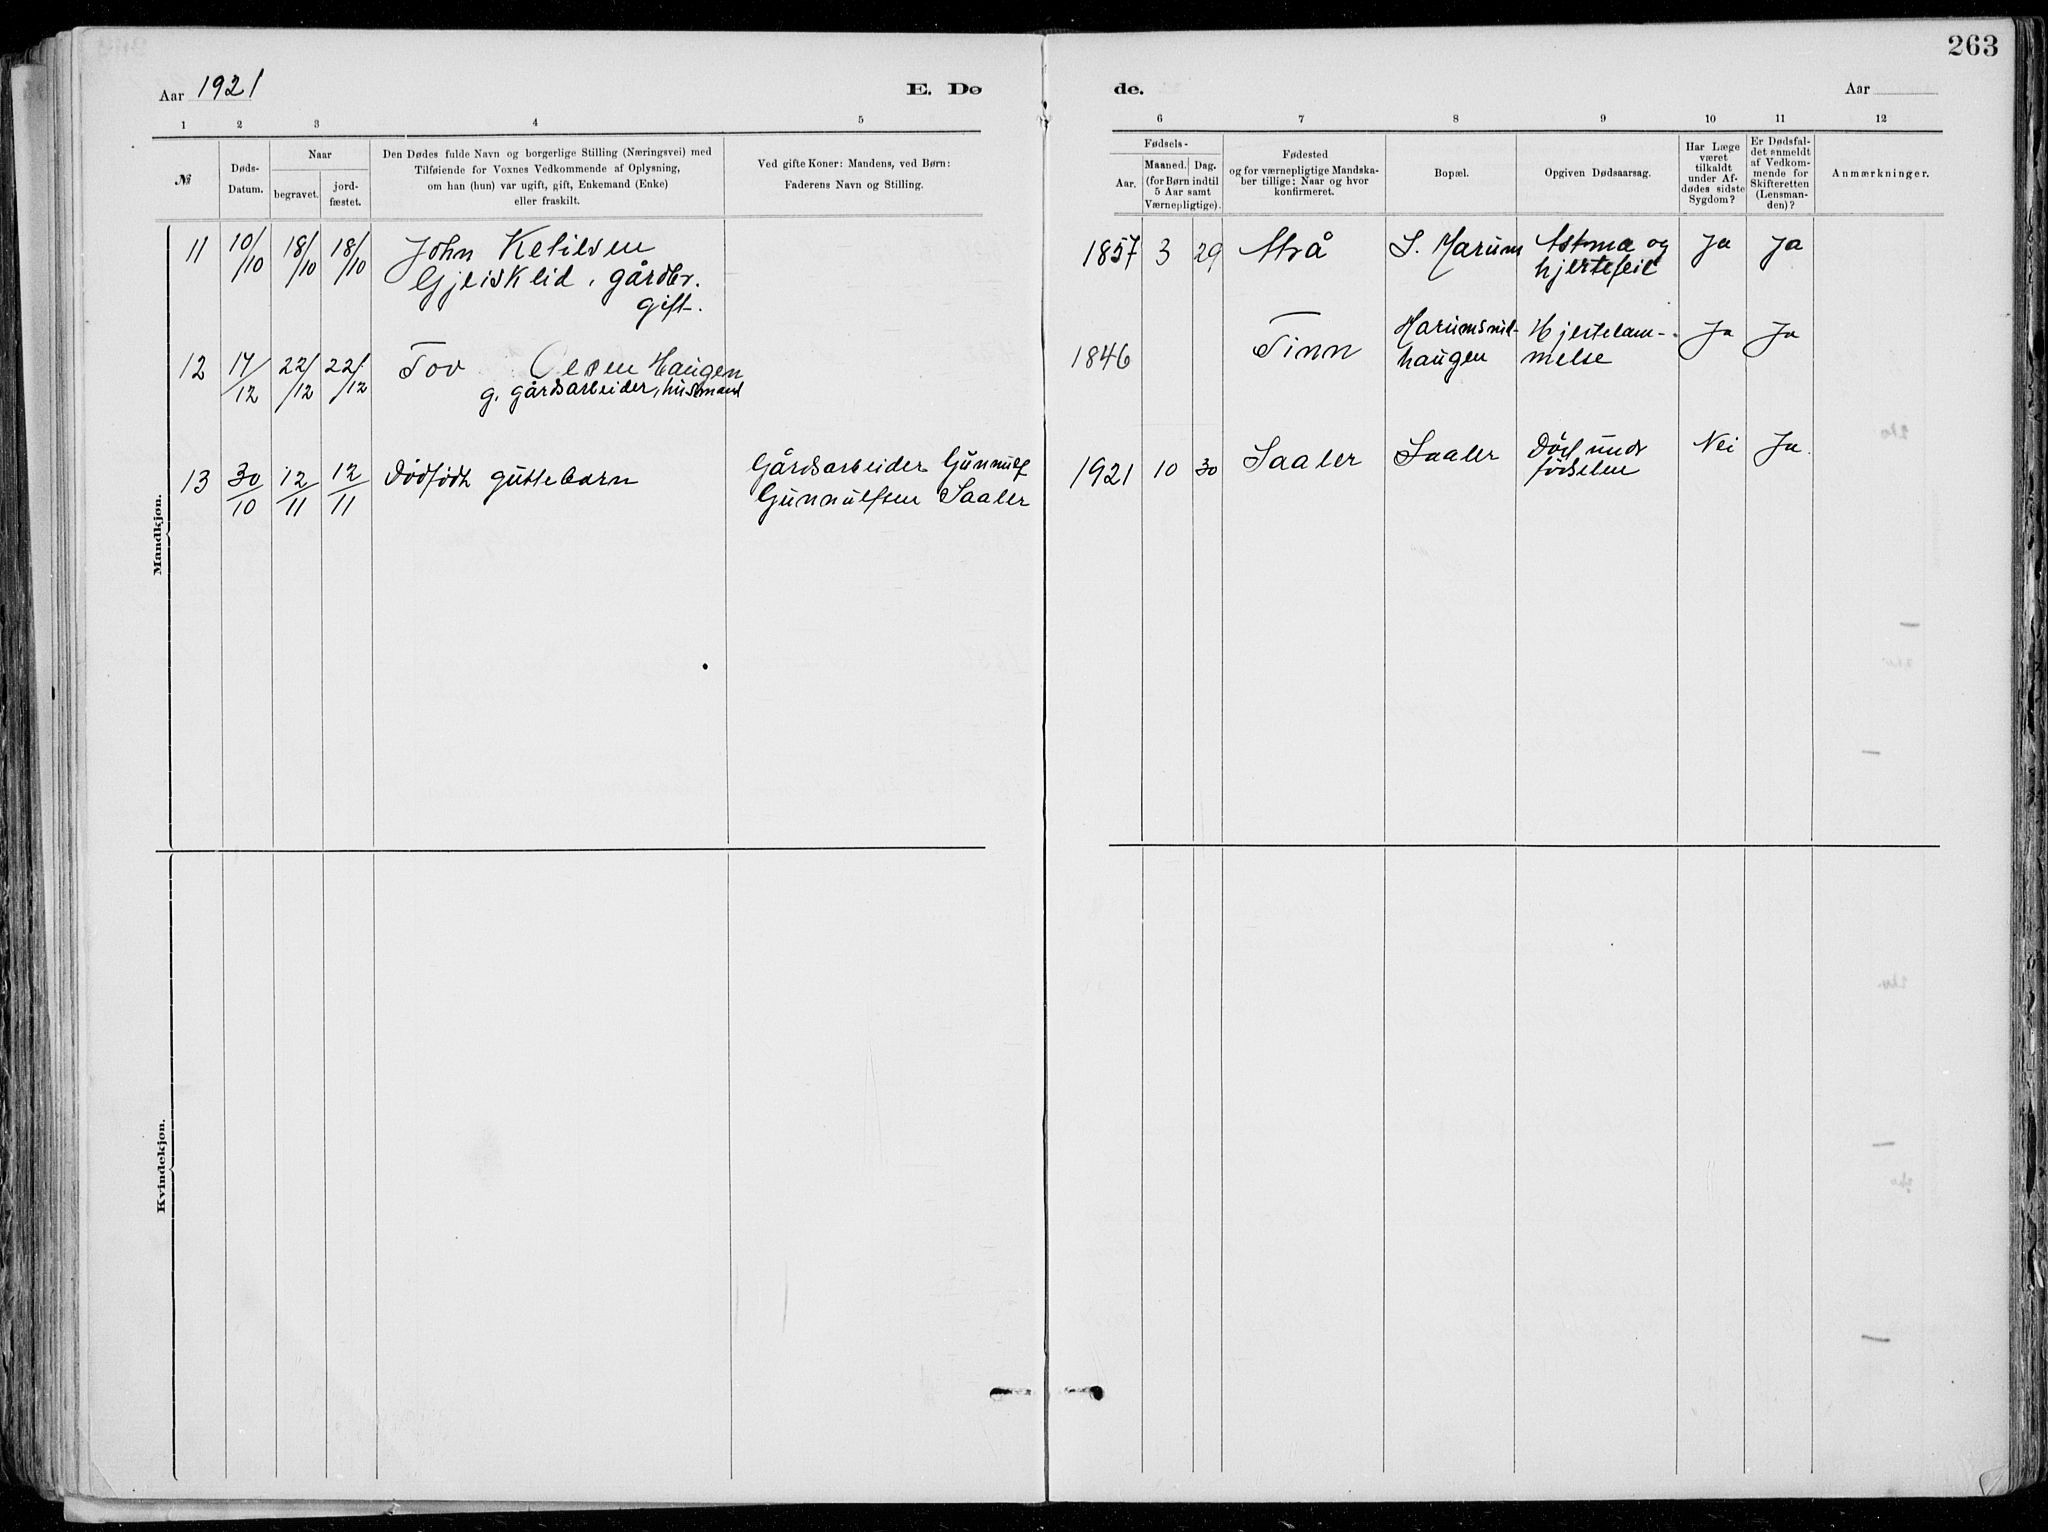 263
Aar 1921
E. Dø
de.
Aar
1 2 3 4 5 6 7 8 9 10 11 12
№
Døds-
Datum.
Naar
begravet.
jord-
fæstet.
Den Dødes fulde Navn og borgerlige Stilling (Næringsvei) med
Tilføiende for Voxnes Vedkommende af Oplysning,
om han (hun) var ugift, gift, Enkemand (Enke)
eller fraskilt.
Ved gifte Koner: Mandens, ved Børn:
Faderens Navn og Stilling.
Fødsels-
Aar.
Maaned. Dag.
(for Børn indtil
5 Aar samt
Værnepligtige).
Fødested
og for værnepligtige Mandska-
ber tillige: Naar og hvor
konfirmeret.
Bopæl.
Opgiven Dødsaarsag.
Har Læge
været
tilkaldt
under Af-
dødes sidste
Sygdom?
Er Dødsfal-
det anmeldt
af Vedkom-
mende for
Skifteretten
(Lensman-
den)?
Anmærkninger.
Mandkjøn.
11 10/10 18/10 18/10 John Ketilsen 1857 3 29 Atrå S. Marum Astma og Ja Ja
Gjeisklid, gårdbr. hjertefeil
gift.
12 17/12 22/12 22/12 Tov Olsen Haugen 1846 Tinn Marumsmil- Hjertelam- Ja Ja
g. gårdsarbeider, husmand haugen melse
13 30/10 12/11 12/11 Dødfødt guttebarn Gårdsarbeider Gunnulf 1921 10 30 Saaler Saaler Død under Nei Ja.
Gunnulfsen Saaler fødselen
Kvindekjøn.